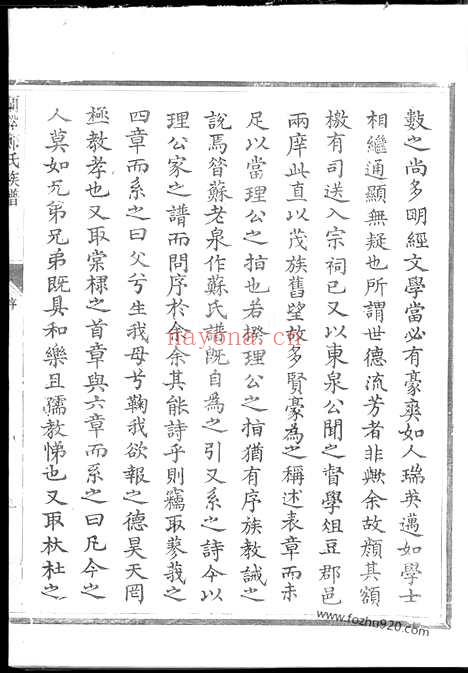 數之尚多明經文學當必有豪爽如人瑞英邁如學士
相繼通顯無疑也所謂世德流芳者非歟余故顏其額
檄有司送入宗祠已又以東泉公聞之督學俎豆郡邑
兩庠此直以茂族舊望故多賢豪為之稱述表章而未
足以當理公之指也若揆理公之指猶有序族教誡之
說焉昔蘇老泉作蘇氏譜既自為之引又系之詩今以
理公家之譜而問序於余余其能詩乎則竊取蓼莪之
四章而系之曰父兮生我母兮鞠我欲報之德昊天罔
極教孝也又取棠棣之首章與六章而系之曰凡今之
人莫如兄弟兄弟既具和樂且孺教悌也又取杕杜之
氏族譜
序
nayona.cn
www.fozhu920.com